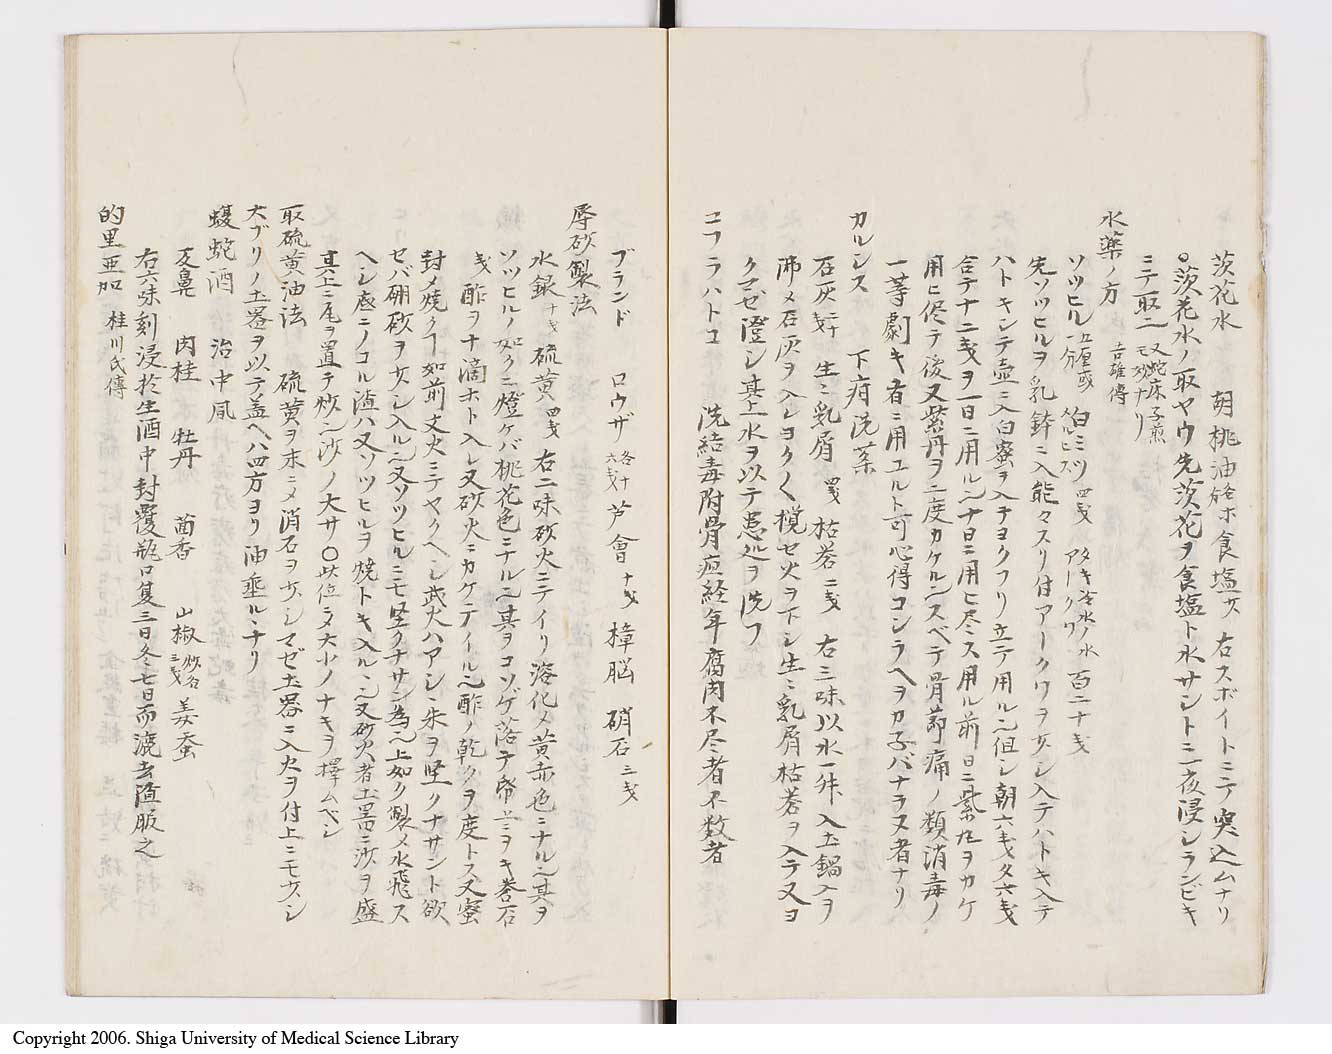 茨花水 胡桃油 食塩 右スボイトニテ突込ムナリ
○茨花水ノ取ヤウ先茨花ヲ食塩ト水サント二夜浸シランビキ
ニテ取ル 又蛇床子煎モ妙ナリ
水薬ノ方 吉雄傳
ソツヒル 五厘或一分 白ミツ 四戔 アタキ冷水ノ水 百二十戔
先ソツヒルヲ乳鉢ニ入能々スリ付アークワヲ少シ入テハトキ入テ
ハトキシテ壷ニ入白蜜ヲ入テヨクフリ立テ用ル也但シ朝六戔夕六戔
合テ十二戔ヲ一日ニ用ル也十日ニ用ヒ尽ス用ル前日ニ紫丸ヲカケ
用ヒ後テ後又紫丹ヲ二度カケルスベテ骨節痛ノ類消毒ノ
一等劇キ者ニ用ユルト可心得コシラヘヲカ子バナラヌ者ナリ
カルシス 下疳洗薬
石灰 生ミ乳屑 四戔 枯礬 二戔 右三味以水一舛入土鍋入ヲ
沸メ石灰ヲ入レヨク〱攪セ火ヲ下シ生ミ乳屑枯礬ヲ入テ又ヨ
クマゼ澄シ其上水ヲ以テ患処ヲ洗フ
ニフラハトコ 洗結毒附骨疽経年腐肉不尽者不数者
ブランド ロウザ 各十六戔 芦會 十戔 樟脳 硝石 三戔
辱砂製法
水銀 十戔 硫黄 四戔 右二味砂火ニテイリ溶化メ黄赤色ニナル也其ヲ
ソツヒルノ如クニ燈ケバ桃花色ニナル也其ヲコソゲ落テ帋ニヲキ礬石
戔酢ヲ十滴ホト入レ又砂火ニカケテイル也酢ノ乾クヲ度トス又蜜
封メ焼クヿ如前文火ニテヤクヘシ武火ハアシ朱ヲ堅クナサント欲
セバ硼砂ヲ少シ入ル也又ソツヒルニモ堅クナサン為也上如ク製メ水飛ス
ヘシ底ニノコル渣ハ又ソツヒルヲ焼トキ入ル也又砂火者土器ニ沙ヲ盛
其上ニ瓦ヲ置テ炒ル沙ノ大サ○此位ニメ大小ノナキヲ擇ムベシ
取硫黄油法 硫黄ヲ末ニメ消石ヲ少シマゼ土器ニ入火ヲ付上ニモ少シ
大ブリノ土器ヲ以テ盖ヘハ四方ヨリ油垂ルヽナリ
蝮蛇酒 治中風
反鼻 肉桂 牡丹 茴香 山椒 炒各三戔 姜蚕
右六味刻浸於生酒中封覆瓶口夏三日冬七日而漉去渣服之
的里亜加 桂川氏傳